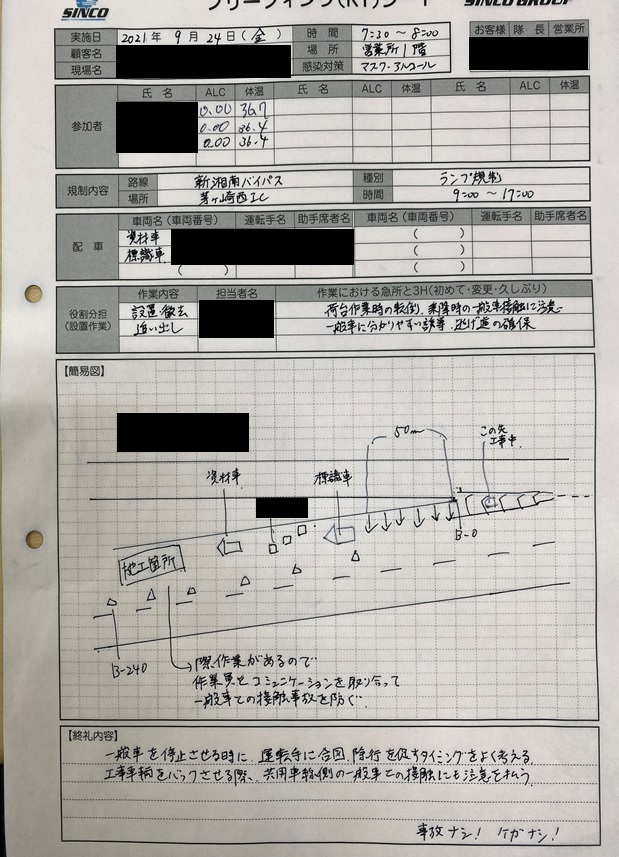 SINCO
ブリーフィング(KY)シート
SINCO GROUP
実施日 2021年 9月 24日(金) 時間 7:30 ~ 8:00 お客様 隊長 営業所
顧客名 場所 営業所1階
現場名 感染対策 マスク・アルコール
氏名 ALC 体温 氏名 ALC 体温 氏名 ALC 体温
参加者
0.00 36.7
0.00 36.4
0.00 36.4
規制内容 路線 新湘南バイパス 種別 ランプ規制
場所 茅ヶ崎西IC 時間 9:00 ~ 17:00
配車 車両名(車両番号) 運転手名 助手席者名 車両名(車両番号) 運転手名 助手席者名
資材車 ( )
標識車 ( )
( ) ( )
役割分担(設置作業) 作業内容 担当者名 作業における急所と3H(初めて・変更・久しぶり)
設置・撤去 荷台作業時の転倒、乗降時の一般車接触に注意
追い出し 一般車に分かりやすい誘導、逃げ道の確保
【簡易図】
50m
この先
工事中
資材車
標識車
B-0
施工箇所
B-240
際作業があるので
作業員とコミュニケーションを取り合って
一般車との接触事故を防ぐ
【終礼内容】
一般車を停止させる時に、運転手に合図、徐行を促すタイミングをよく考える。
工事車輌をバックさせる際、共用車線側の一般車との接触にも注意を払う。
事故ナシ! ケガナシ!